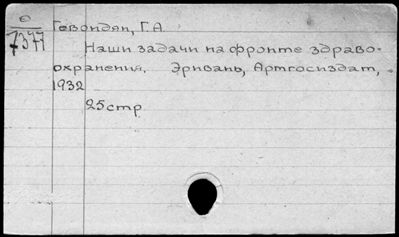 6
7377
Гевондян, Г.А.
Наши задачи на фронте здраво-
охранения. Эривань, Армгосиздат,
1932
25 стр